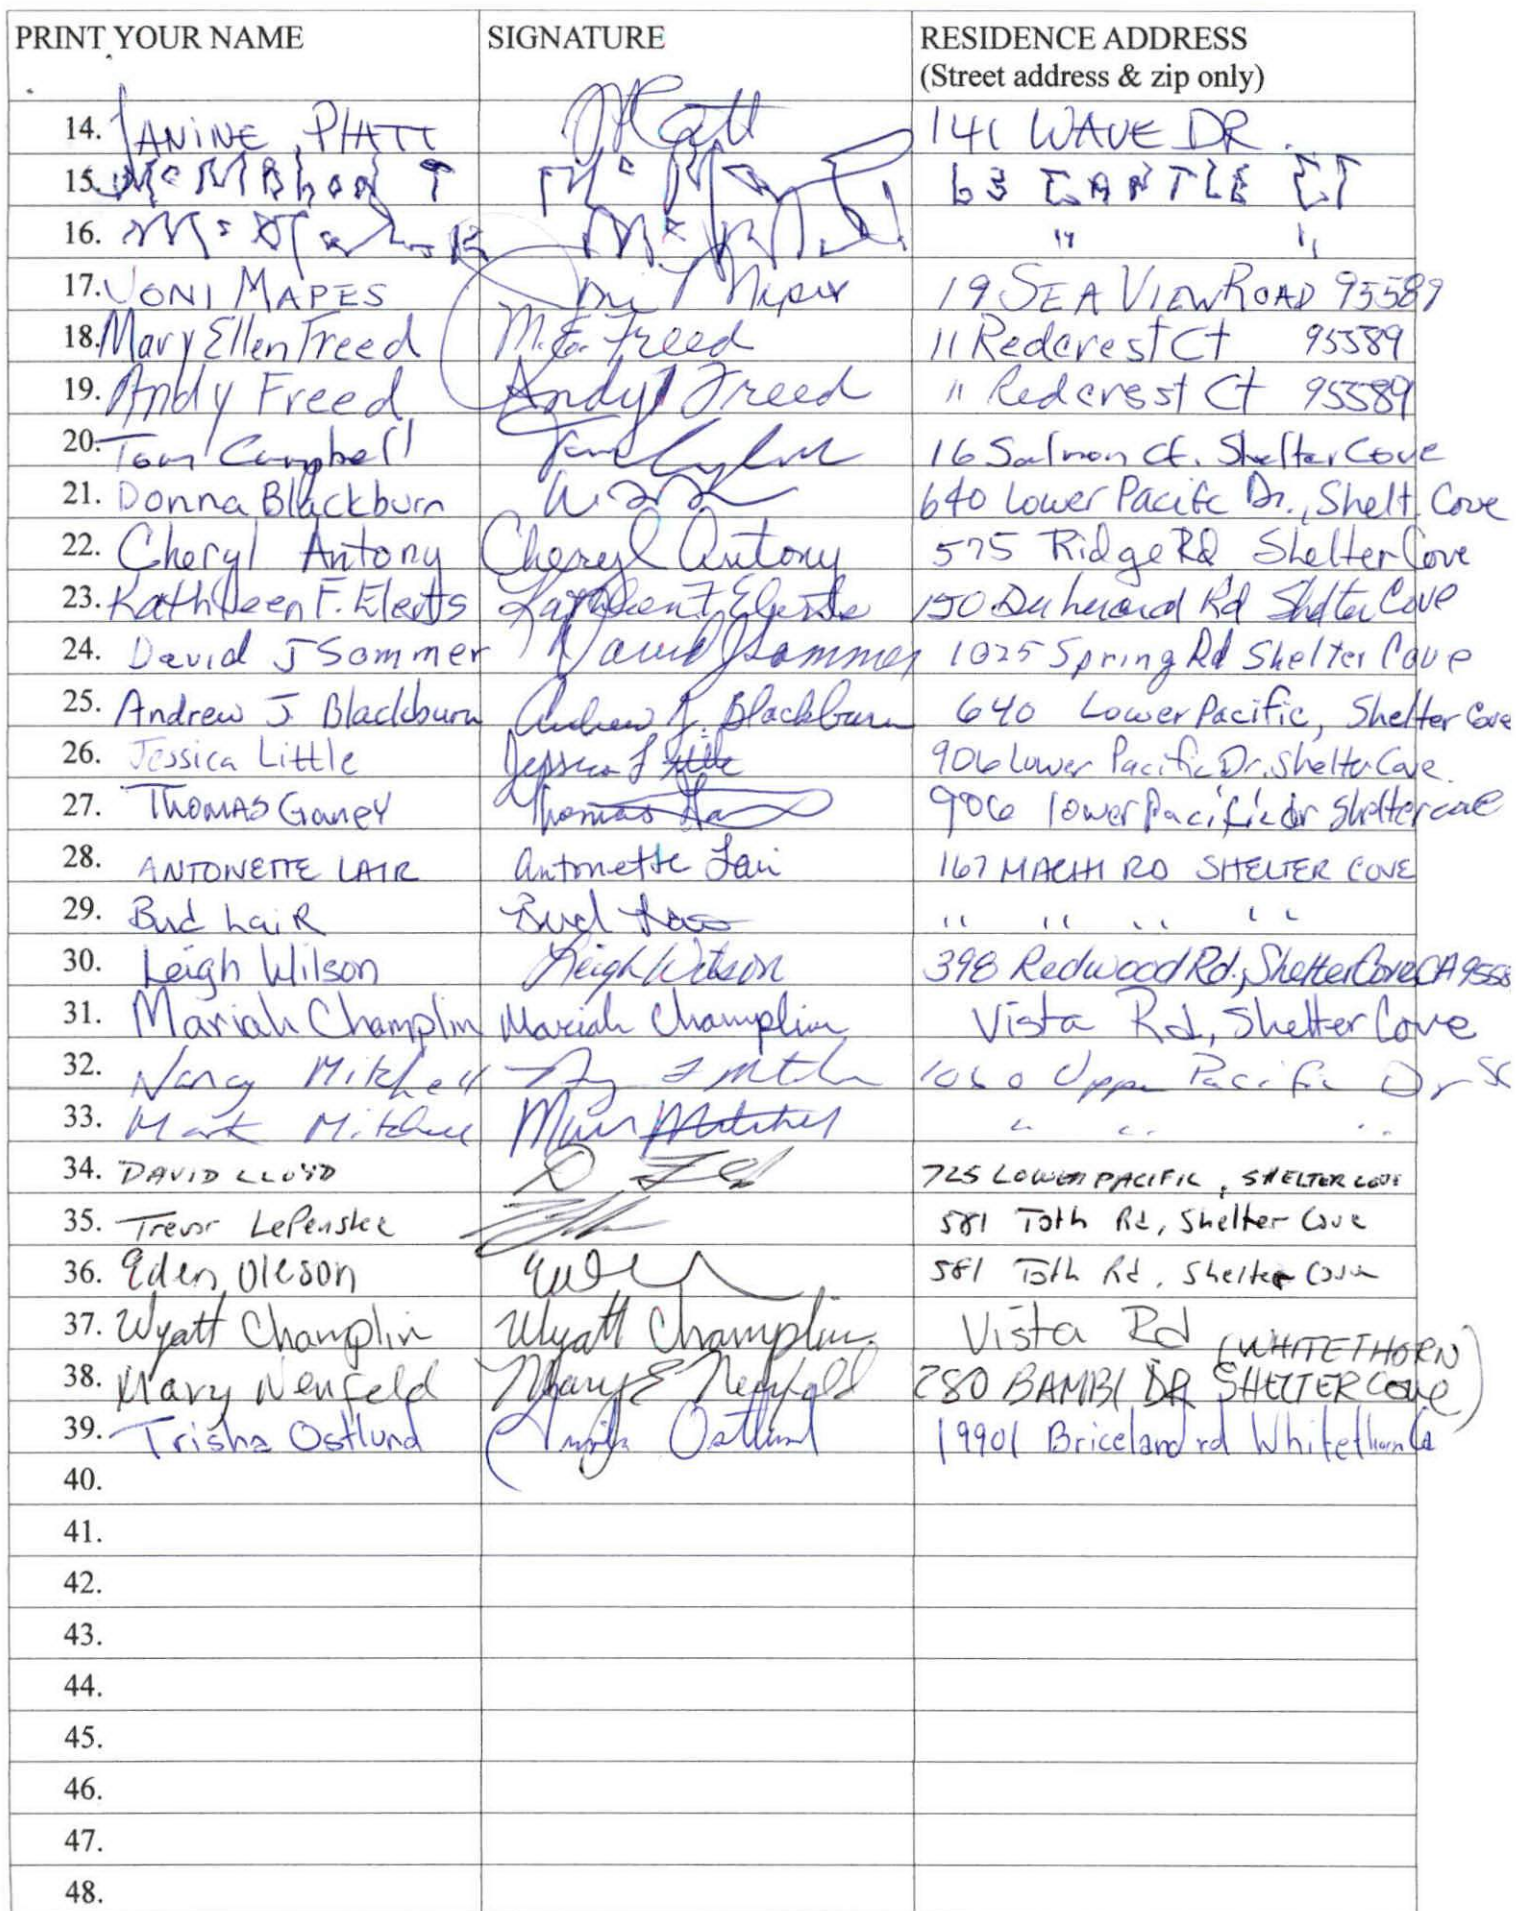 PRINT YOUR NAME SIGNATURE RESIDENCE ADDRESS
(Street address & zip only)
14. JANINE PIATT 141 WAVE DR.
15. McMahon T 63 CT
16. " "
17. VONI MAPES 19 SEA VIEW ROAD 95589
18. Mary Ellen Freed M.E. Freed 11 Redcrest Ct 95589
19. Andy Freed Andy Freed 11 Redcrest Ct 95589
20. Tom Campbell 16 Salmon Ct. Shelter Cove
21. Donna Blackburn 640 Lower Pacifc Dr., Shelt. Cove
22. Cheryl Antony Cheryl Antony 575 Ridge Rd Shelter Cove
23. Kathleen F. Rd Shelter Cove
24. David J Sommer David J Sommer 1025 Spring Rd Shelter Cove
25. Andrew J. Blackburn Andrew J. Blackburn 640 Lower Pacific, Shelter Cove
26. Jessica Little Jessica Little 906 Lower Pacific Dr. Shelter Cove.
27. THOMAS GANEY Thomas 906 lower Pacific dr Shelter cove
28. ANTONETTE LAIR Antonette Lair 167 RD SHELTER COVE
29. Bud LaiR Bud " " " "
30. Leigh Wilson Leigh Wilson 398 Redwood Rd, Shelter Cove CA 9558
31. Mariah Champlin Mariah Champlin Vista Rd, Shelter Cove
32. Nancy Mitchell 1060 Upper Pacific Dr SC
33. Mark Mitchell Mitchell " " "
34. DAVID LLOYD 725 LOWER PACIFIC, SHELTER COVE
35. Trevor LePenske 581 Toth Rd, Shelter Cove
36. Eden Oleson 581 Toth Rd, Shelter Cove
37. Wyatt Champlin Wyatt Champlin Vista Rd (WHITETHORN)
38. Mary Neufeld Mary E Neufeld 280 BAMBI DR SHELTER Cove
39. Trisha Ostlund Trisha Ostlund 19901 Briceland rd Whitethorn Ca
40.
41.
42.
43.
44.
45.
46.
47.
48.